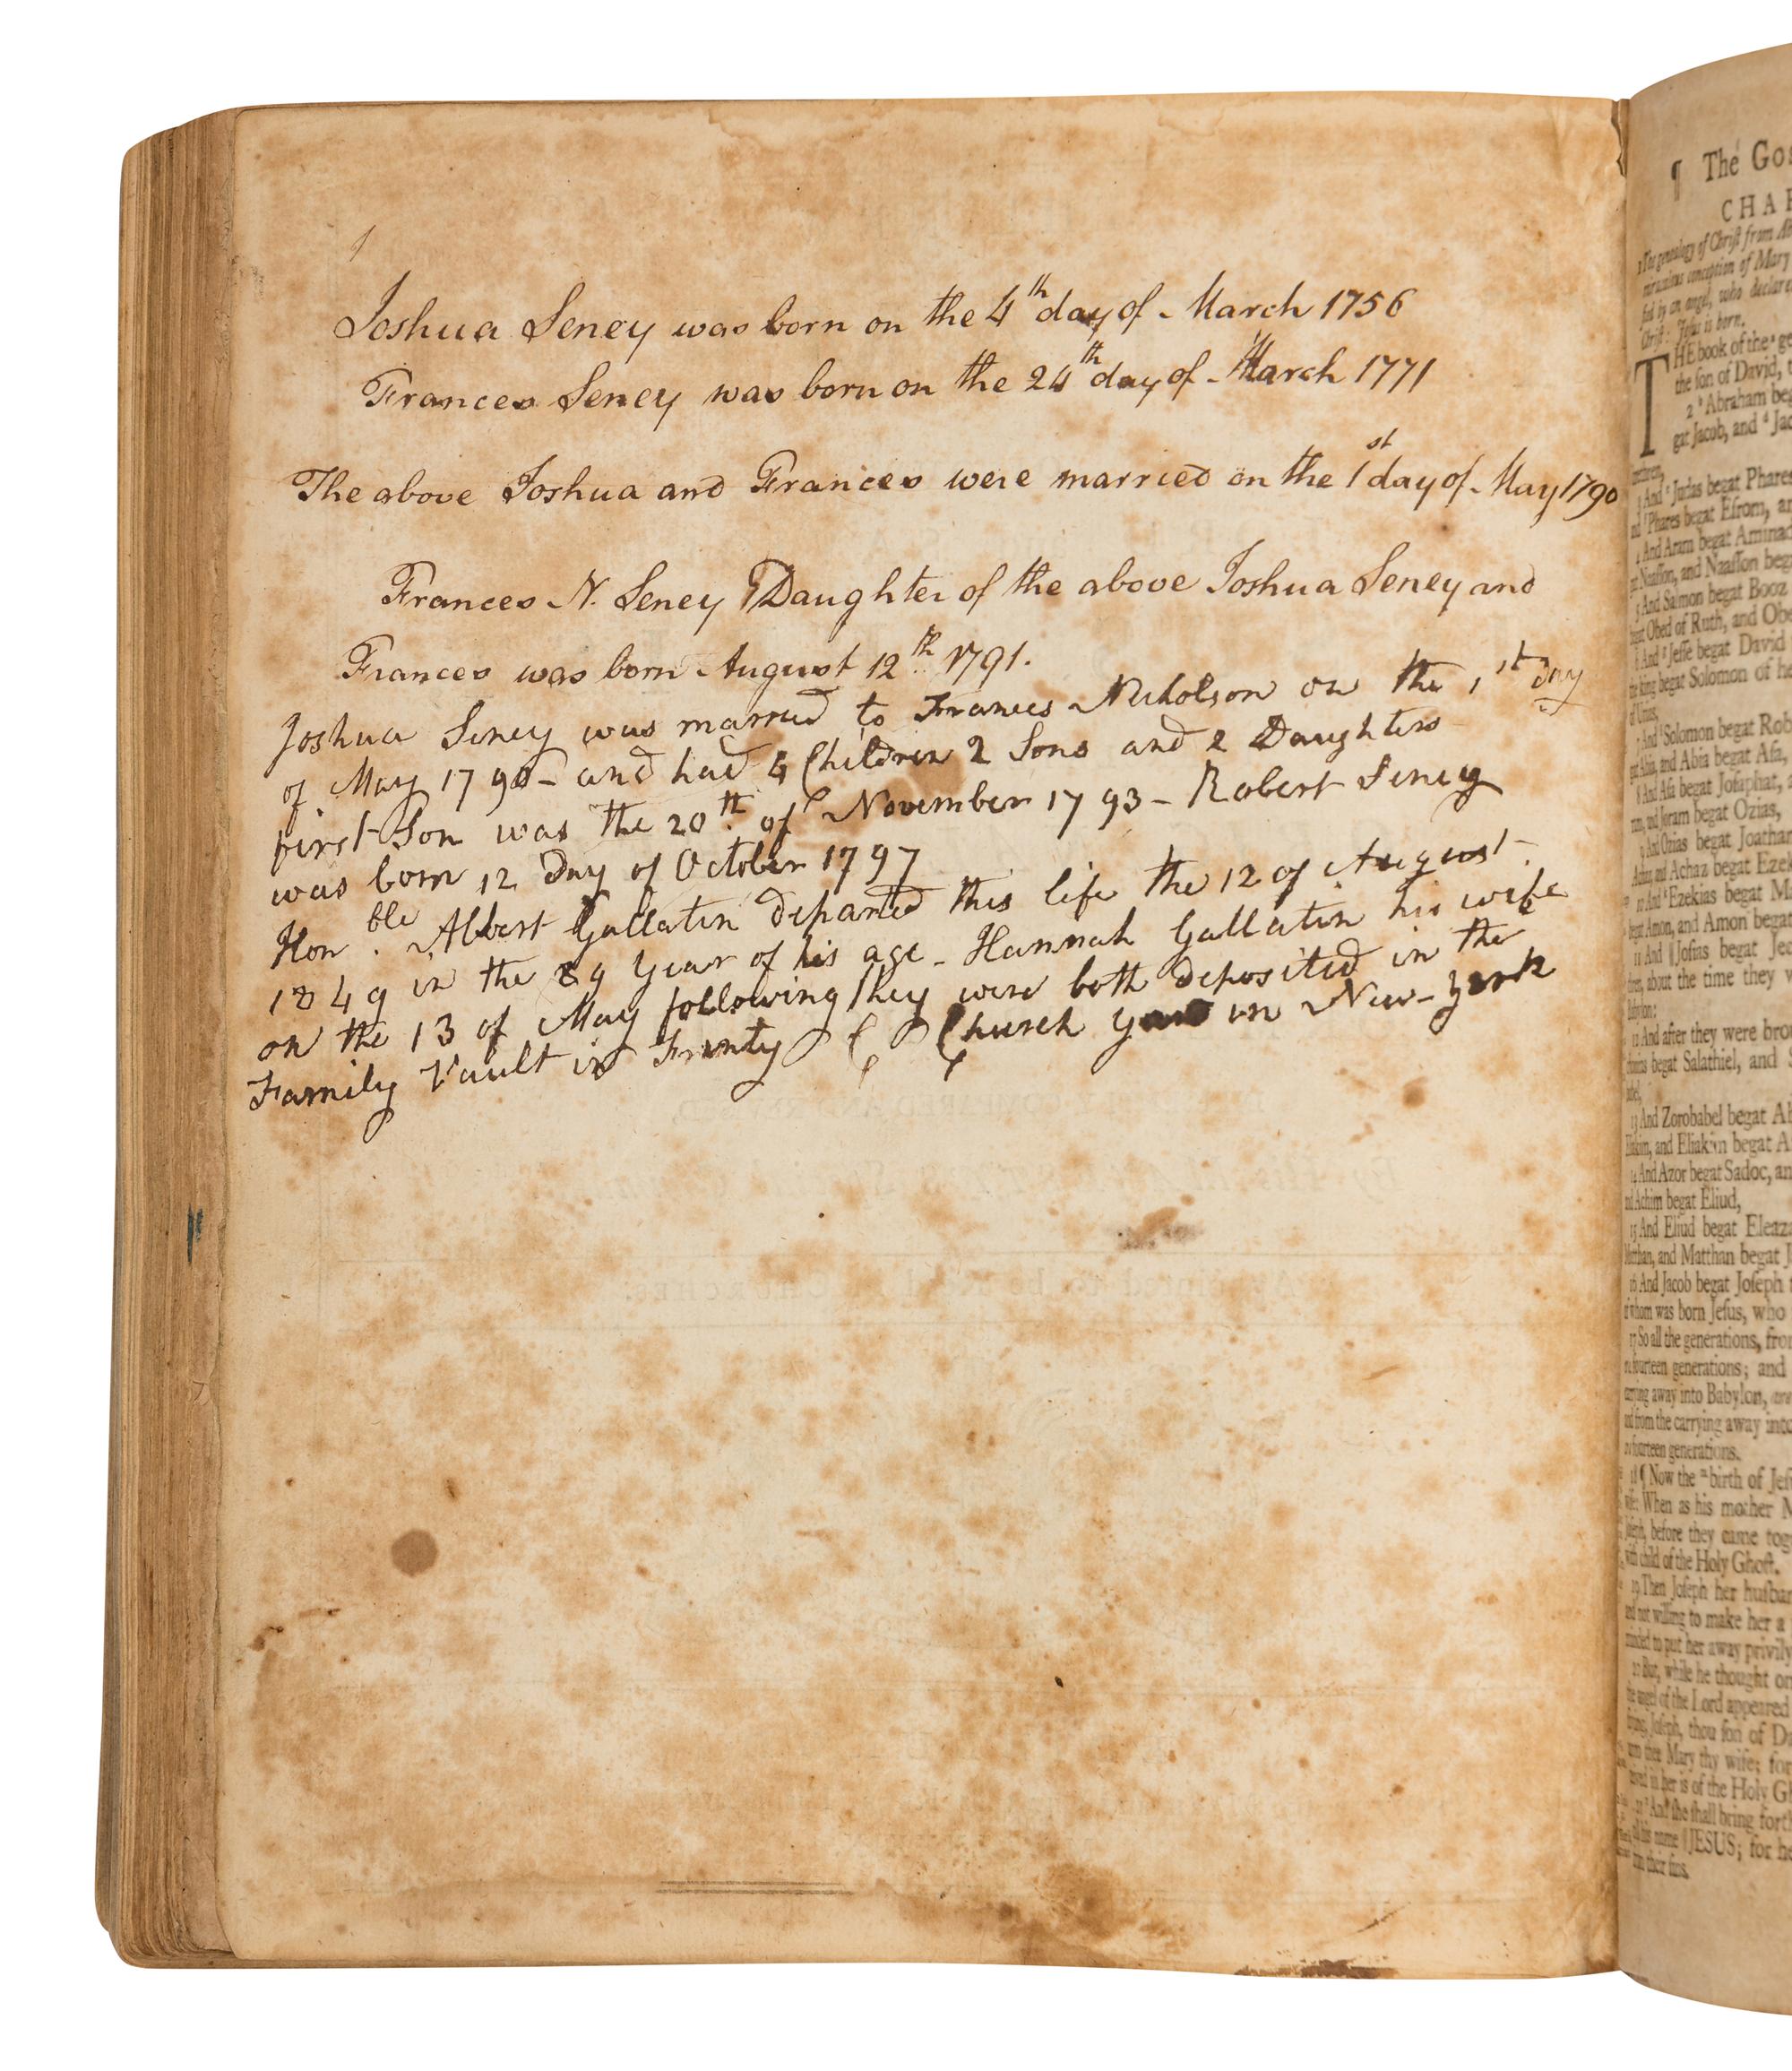 Joshua Seney was born on the 4th day of March 1756
Frances Seney was born on the 24th day of March 1771
The above Joshua and Frances were married on the 1st day of May 1790
Frances N. Seney Daughter of the above Joshua Seney and
Frances was born August 12th 1791.
Joshua Seney was married to Frances Nicholson on the 1st Day
of May 1790 - and had 4 Children 2 Sons and 2 Daughters
first Son was the 20th of November 1793 - Robert Seney
was born 12 Day of October 1797
Honble. Albert Gallatin departed this life the 12 of August
1849 in the 89 Year of his age - Hannah Gallatin his wife
on the 13 of May following they were both deposited in the
Family Vault in Trinty Church Yard in New-York
¶ The Gos
CHAP
1 The genealogy of Christ from
raculous conception of Mary
fied by an angel, who declare
Christ: Jesus is born.
THE book of the ge
the son of David, t
2 Abraham beg
gat Jacob, and Jac
brethren,
3 And Judas begat Phares
Phares begat Esrom, an
4 And Aram begat Aminad
Naasson, and Naasson bega
5 And Salmon begat Booz
begat Obed of Ruth, and Obe
6 And Jesse begat David
the king begat Solomon of
of Urias,
7 And Solomon begat Rob
gat Abia, and Abia begat Asa,
8 And Asa begat Josaphat, a
Joram begat Ozias,
9 And Ozias begat Joathan
and Achaz begat Ezek
10 And Ezekias begat Ma
begat Amon, and Amon begat
11 And Josias begat Jec
about the time they w
Babylon:
12 And after they were bro
begat Salathiel, and
13 And Zorobabel begat Ab
and Eliakim begat A
14 And Azor begat Sadoc, an
Achim begat Eliud,
15 And Eliud begat Eleaz
Matthan, and Matthan begat J
16 And Jacob begat Joseph
of whom was born Jesus, who
17 So all the generations, fro
fourteen generations; and
carrying away into Babylon, are
from the carrying away into
fourteen generations.
18 ¶ Now the birth of Jes
wise: When as his mother M
Joseph, before they came tog
with child of the Holy Ghost.
19 Then Joseph her husban
and not willing to make her a
minded to put her away privily
20 But, while he thought on
the angel of the Lord appeared
Joseph, thou son of Da
thee Mary thy wife: for
in her is of the Holy Gh
21 And she shall bring forth
his name JESUS; for he
their sins.